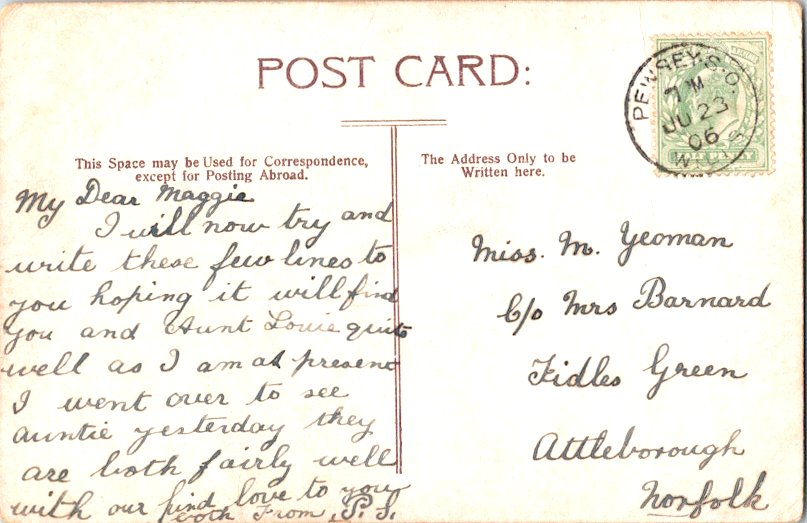 POST CARD:
PEWSEY.S.O.
7 M
JU 23
06
This Space may be Used for Correspondence,
except for Posting Abroad.
The Address Only to be
Written here.
My Dear Maggie
I will now try and
write these few lines to
you hoping it will find
you and Aunt Louie quite
well as I am at present
I went over to see
auntie yesterday they
are both fairly well
with our kind love to you
both From P.S.
Miss. M. Yeoman
C/o Mrs Barnard
Fidles Green
Attleborough
Norfolk